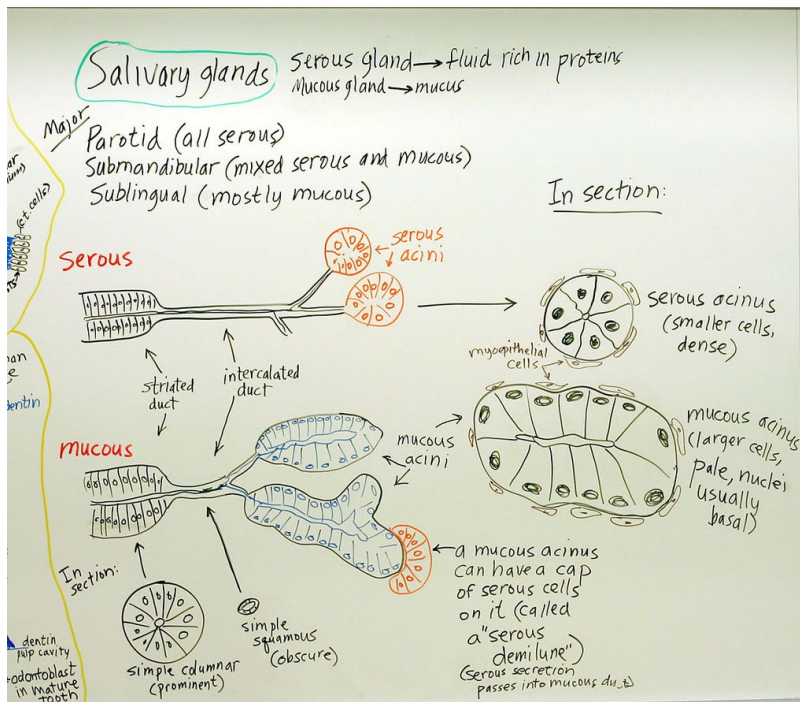 Salivary glands
Serous gland → fluid rich in proteins
Mucous gland → mucus
Major
Parotid (all serous)
Submandibular (mixed serous and mucous)
Sublingual (mostly mucous)
In section:
(c.t. cells)
serous
serous
acini
serous acinus
(smaller cells,
dense)
myoepithelial
cells
striated
duct
intercalated
duct
dentin
mucous
mucous
acini
mucous acinus
(larger cells,
pale, nuclei
usually
basal)
In
section:
a mucous acinus
can have a cap
of serous cells
on it (called
a "serous
demilune")
(serous secretion
passes into mucous duct)
simple columnar
(prominent)
simple
squamous
(obscure)
dentin
pulp cavity
odontoblast
in mature
tooth